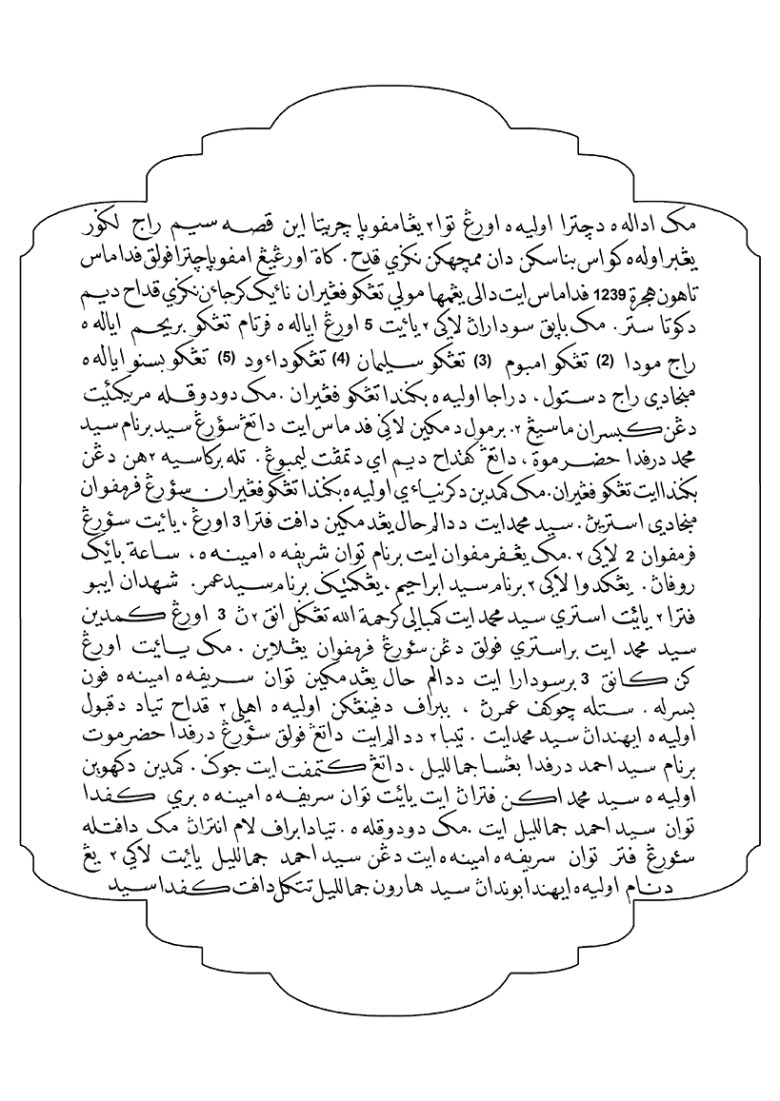 مک اداله ه دچترا اوليه ه اورڠ توا۲ يڠامفوڽا چريتا اين قصه سيم راج لکور
يڠبراوله ه کواس بناسکن دان ممچهکن نکري قدح. کاة اورڠيڠ امفوڽاچترافولق فداماس
تاهون هجرة 1239 فداماس ايت دالی يڠمها مولي تڠکو فڠيران نائيک کرجاءن نکري قداح ديم
دکوتا ستر. مک باپق سوداراڽ لاکي۲ يائيت 5 اورڠ اياله ه فرتام تڠکو بريحم اياله ه
راج مودا (2) تڠکو امبوم (3) تڠکو سليمان (4) تڠکوداءود (5) تڠکو بسنو اياله ه
منجادي راج دستول، دراجا اوليه ه بکندا تڠکو فڠيران .مک دودوقله مريکئيت
دڠن کبسران ماسيڠ۲. برمول دمکين لاکي فد ماس ايت داتڠ سؤرڠ سيد برنام سيد
محمد درفدا حضرموة، داتڠ کقداح ديم اي دتمڤت ليمبوڠ. تله برکاسيه۲هن دڠن
بکنداايت تڠکو فڠيران.مک کمدين دکرنياءي اوليه ه بکندا تڠکوفڠيران سؤرڠ فرمفوان
منجادي استرين. سيد محمدايت ددالم حال يڠدمکين دافت فترا 3 اورڠ، يائيت سؤرڠ
فرمفوان 2 لاکي۲ .مک يڠفرمفوان ايت برنام توان شريفه ه امينه ه، ساعة بائيک
روفاڽ. يڠکدوا لاکي۲ برنام سيد ابراحيم، يڠکتيک برنام سيدعمر. شهدان ايبو
فترا۲ يائيت استري سيد محمدايت کمبالی کرحمة الله تڠکل انق۲ن 3 اورڠ کمدين
سيد محمد ايت براستري فولق دڠن سئورڠ فرمفوان يڠلاين . مک يائيت اورڠ
کن کانق 3 برسودارا ايت ددالم حال يڠدمکين توان سريفه ه امينه ه فون
بسرله . ستله چوکف عمرڽ ، ببراف دفينڠکن اوليه ه اهلي۲ قداح تياد دقبول
اوليه ه ايهنداڽ سيد محمدايت . تيبا۲ ددالم ايت داتڠ فولق سئورڠ درفدا حضرموت
برنام سيد احمد درفدا بڠسا جمالليل ، داتڠ کتمفت ايت جوک . کمدين دکهوين
اوليه ه سيد محمد اکن فتراڽ ايت يائيت توان سريفه ه امينه ه بري کفدا
توان سيد احمد جمالليل ايت .مک دودوقله ه .تيادابراف لام انتراڽ مک دافتله
سئورڠ فتر توان سريفه ه امينه ه ايت دڠن سيد احمد جمالليل يائيت لاکي۲ يڠ
دنام اوليه ه ايهندابونداڽ سيد هارون جمالليل تتکل دافت کفدا سيد